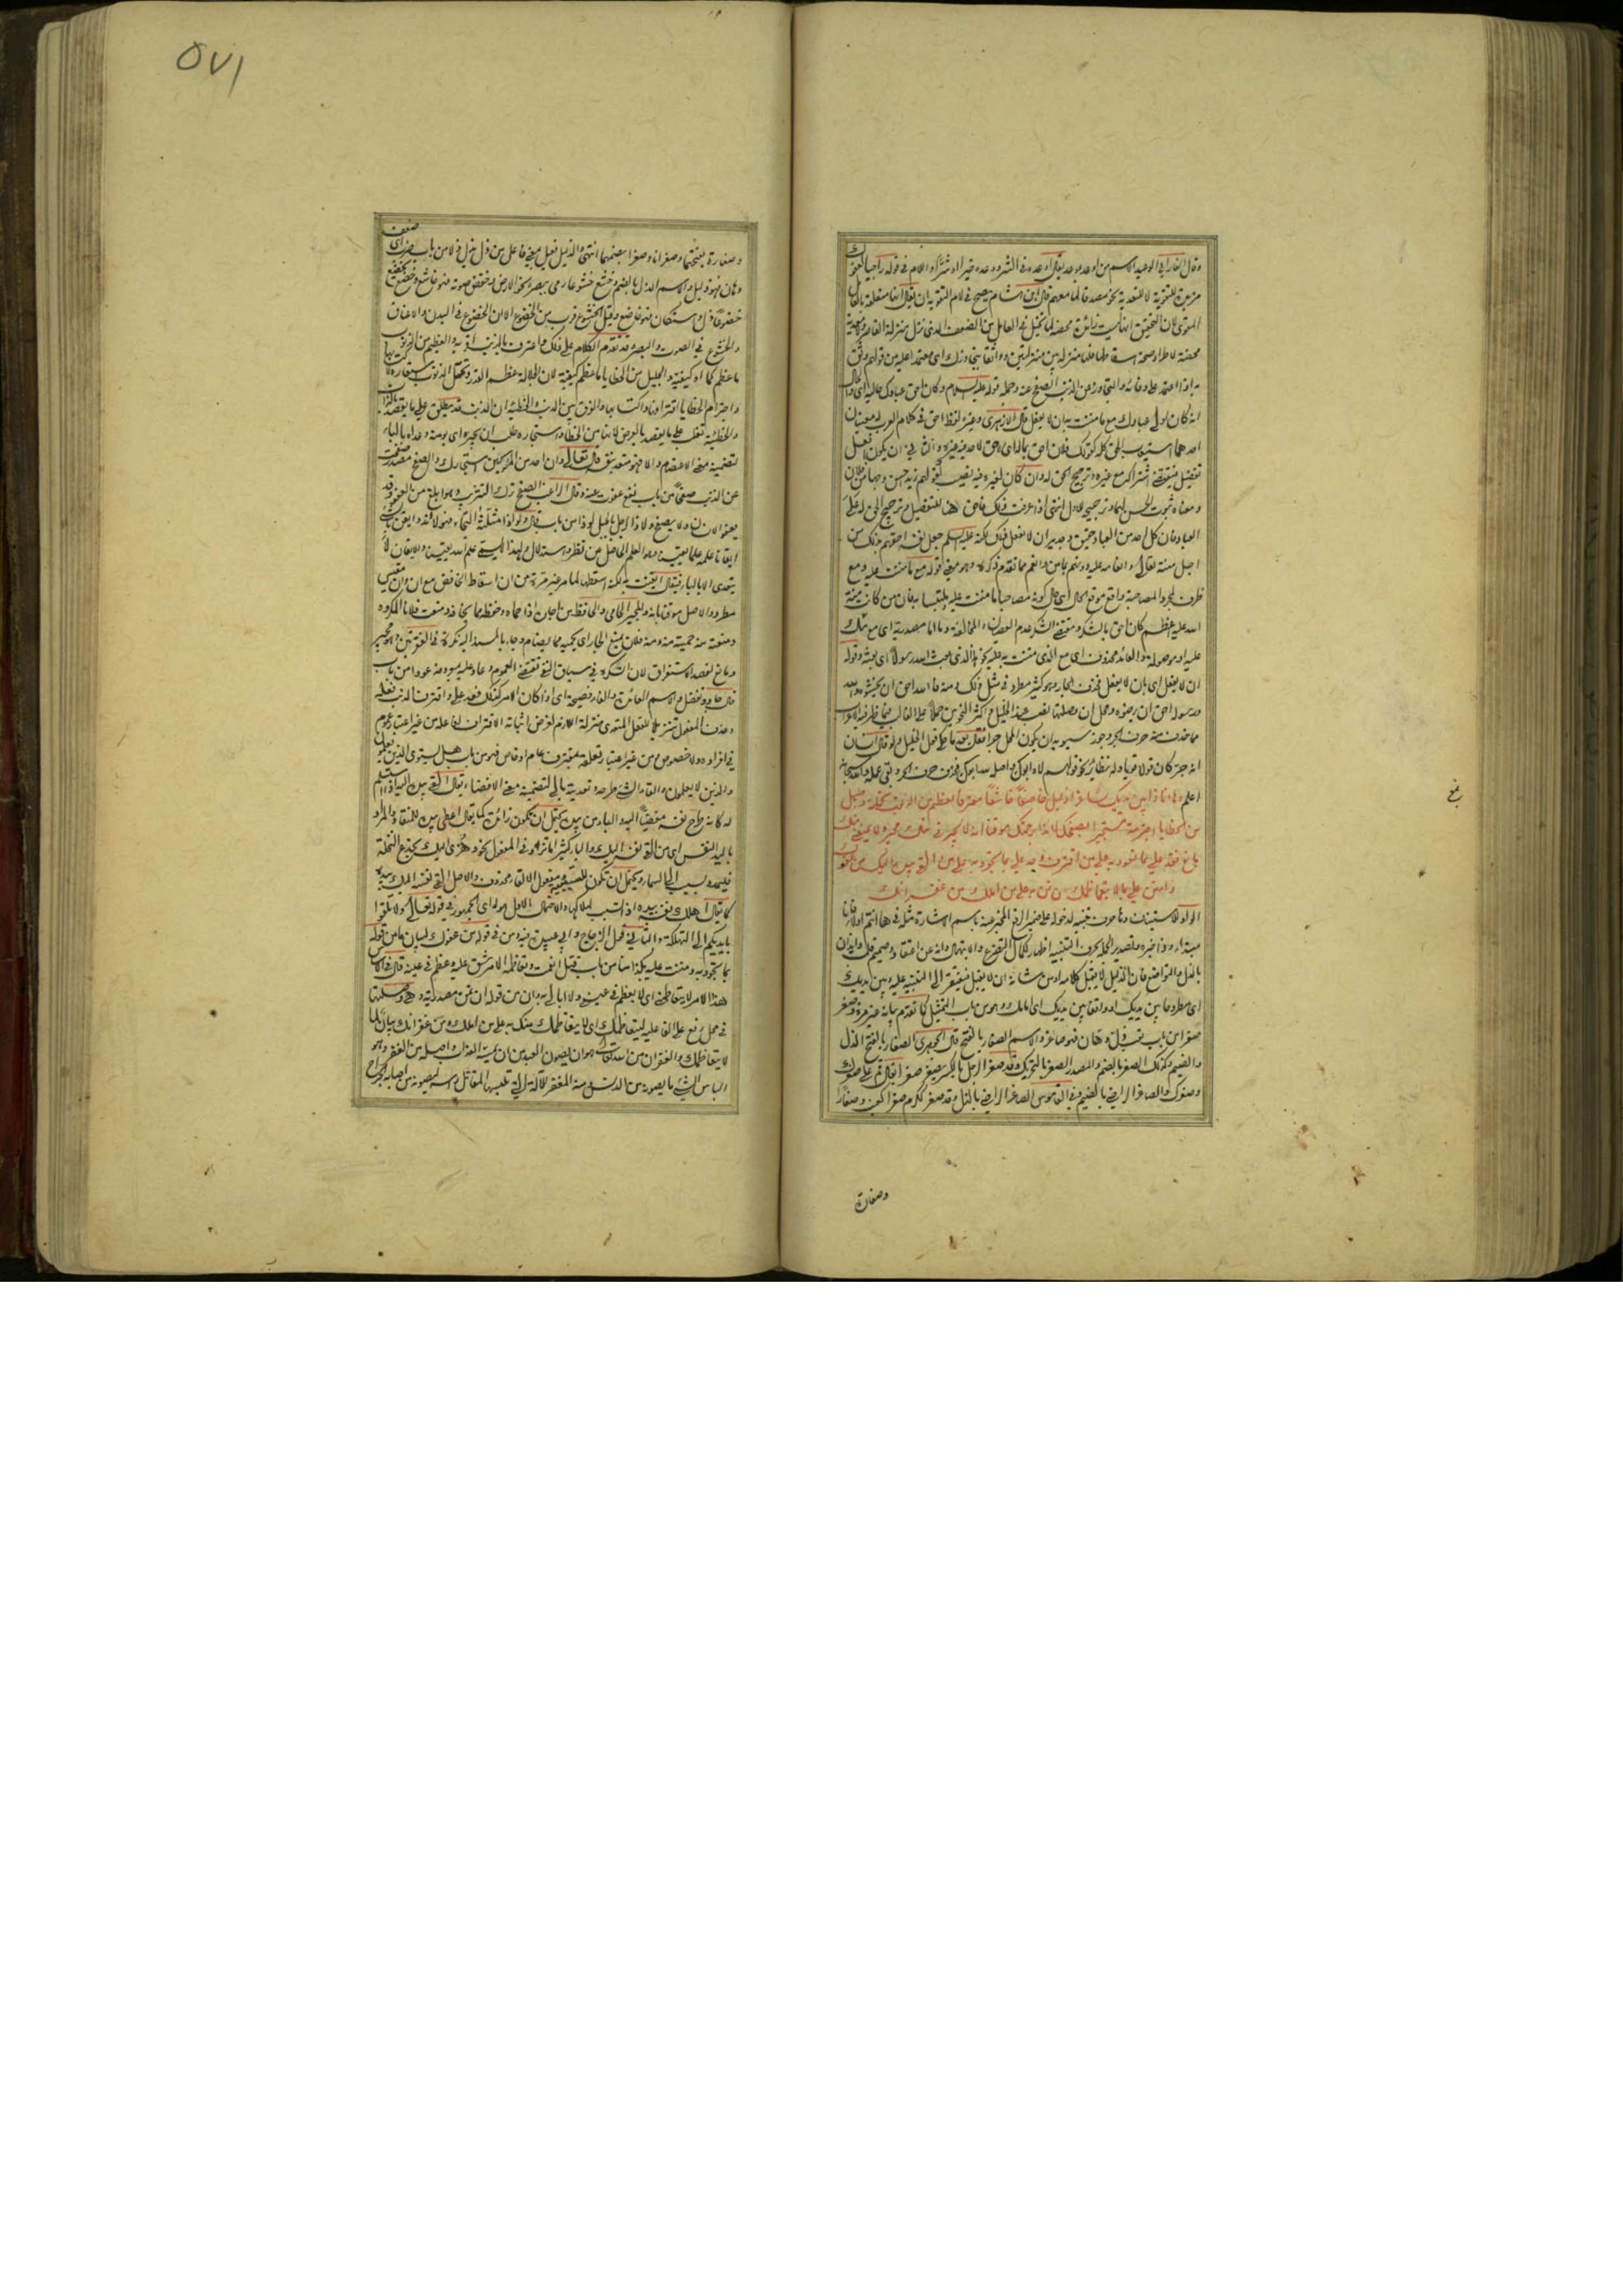 وقال الفارابي الوعيد الاسم من اوعد ووعد يقال اوعده في الشر ووعده خيرا او شرا واللام في قوله راجيا لعفوك
مزيدة للتقوية لا للتعدية نحو مصدقا لما معهم قال ابن هشام يصح في لام التقوية ان يقال انها متعلقة بالعامل
المقوى لان التحقيق انها ليست زائدة محضة لما تخيل في العامل من الضعف الذي نزل منزلة القاصر ولا معدية
محضة لاطراد صحة اسقاطها فلها منزلة بين منزلتين وواثقا بتجاوزك اي معتمدا عليه من قولهم وثق
به اذا اعتمد على وفائه والتجاوز عن الذنب الصفح عنه وجملة قوله عليه السلام وكان احق عبادك حالية اي والحال
انه كان اولى عبادك مع ما مننت به ان لا يفعل قال الازهري وغيره لفظ احق في كلام العرب له معنيان
احدهما استيعاب الحق كله كقولك فلان احق بماله اي لا حق لاحد فيه غيره والثاني ان يكون افعل
تفضيل فيقتضي اشتراكه مع غيره وترجيح الحق له وان كان لغيره فيه نصيب كقولهم زيد احسن وجها من فلان
ومعناه ثبوت الحسن لهما وترجيحه للاول انتهى اذا عرفت ذلك فاحق هنا للتفضيل وترجيح الحق له على
العباد فان كل احد من العباد حقيق وجدير ان لا يفعل ذلك لكنه عليه السلام جعل نفسه احقهم بذلك من
اجل منته تعالى وانعامه عليه دونهم بما من وانعم مما تقدم ذكره وهو معنى قوله مع ما مننت عليه ومع
ظرف لمجرد المصاحبة واقع موقع الحال اي حال كونه مصاحبا ما مننت عليه وملتبسا به فان من كانت منة
الله عليه اعظم كان احق بالشكر ومقتضى الشكر عدم العصيان والمخالفة وما اما مصدرية اي مع منك
عليه او موصولة والعائد محذوف اي مع الذي مننت به عليه نحو اهذا الذي بعث الله رسولا اي بعثه وقوله
ان لا يفعل اي بان لا يفعل فحذف الجار وهو كثير مطرد في مثل ذلك ومنه فالله احق ان تخشوه والله
ورسوله احق ان يرضوه ومحل ان وصلتها نصب عند الخليل واكثر النحويين حملا على الغالب فيما ظهر فيه الاعراب
مما حذف منه حرف الجر وجوز سيبويه ان يكون المحل جرا فقال بعد ما حكى قول الخليل ولو قال انسان
انه جر كان قولا قويا وله نظائر نحو قولهم لاه ابوك واصله لله ابوك فحذف حرف الجر وبقي عمله والله سبحانه
اعلم وها انا ذا بين يديك صاغرا ذليلا خاضعا خاشعا خائفا معترفا بعظيم من الذنوب تحملته وجليل
من الخطايا اجترمته مستجيرا بصفحك لائذا برحمتك موقنا انه لا يجيرني منك مجير ولا يمنعني منك
مانع فعد علي بما تعود به على من اقترف وجد علي بما تجود به على من القى بيده اليك من عفوك
وامنن علي بما لا يتعاظمك ان تمن به على من املك من غفرانك
الواو للاستيناف وها حرف تنبيه لدخوله على ضمير الرفع المخبر عنه باسم الاشارة مثله في ها انتم اولاء فانا
مبتدا وذا خبره وتصدير الجملة بحرف التنبيه اظهار لكمال التضرع والابتهال وانه عن اعتقاد وصميم قلب وايذان
بالذل والتواضع فان الذليل لا يقبل كلامه او من شانه ان لا يقبل فيفتقر الى التنبيه عليه وبين يديك
اي مطروحا بين يديك او واقفا بين يديك اي امامك وهو من باب التمثيل كما تقدم بيانه غير مرة وصغر
صغرا من باب تعب ذل وهان فهو صاغر والاسم الصغار بالفتح قال الجوهري الصغار بالفتح الذل
والضيم وكذلك الصغر بالضم والمصدر الصغر بالتحريك وقد صغر الرجل بالكسر يصغر صغرا يقال قم على صغرك
وصغرك والصاغر الراضي بالضيم وفي القاموس الصاغر الراضي بالذل وقد صغر ككرم صغرا كعنب وصغارا
وصغارة
٥٧١
وصغارة بفتحهما وصغرانا وصغرا بضمهما انتهى والذليل فعيل بمعنى فاعل من ذل يذل ذلا من باب ضرب اي ضعف
وهان فهو ذليل والاسم الذل بالضم وخشع خشوعا رمى ببصره نحو الارض وخفض صوته فهو خاشع وخضع يخضع
خضوعا ذل واستكان فهو خاضع وقيل الخشوع قريب من الخضوع الا ان الخضوع في البدن والاعناق
والخشوع في الصوت والبصر وقد تقدم الكلام على ذلك واعترف بالذنب اقر به والعظيم من الذنوب
ما عظم كما او كيفية والجليل من الخطايا ما عظم كيفية لان الجلالة عظم القدر وتحمل الذنوب استعارة لارتكابها
واجترام الخطايا اقترافها واكتسابها والفرق بين الذنب والخطيئة ان الذنب قد يطلق على ما يقصد بالذات
والخطيئة تغلب على ما يقصد بالعرض لانها من الخطا واستجاره طلب ان يجيره اي يؤمنه وعداه بالباء
لتضمينه معنى الاعتصام والا فهو متعد بنفسه قال تعالى وان احد من المشركين استجارك والصفح مصدر صفحت
عن الذنب صفحا من باب نفع عفوت عنه وقال الراغب الصفح ترك التثريب وهو ابلغ من العفو وقد
يعفو الانسان ولا يصفح ولاذ الرجل بالجبل لوذا من باب قال ولواذا مثلثة التجا فهو لائذ وايقن بالشيء
ايقانا علمه علما يقينيا وهو العلم الحاصل عن نظر واستدلال ولهذا لا يسمى علم الله يقينا والايقان لا
يتعدى الا بالباء فيقال ايقنت به لكنه اسقطها لما مر غير مرة من ان اسقاط الخافض مع ان وان مقيس
مطرد والاصل موقنا بانه والمجير الحامي والحافظ من اجاره اذا حماه وحفظه مما يخافه ومنعت فلانا المكروه
ومنعته منه حميته منه ومنه فلان يمنع الجار اي يحميه مما يضام وجاء بالمسند اليه نكرة في الفقرتين وهو مجير
ومانع لقصد الاستغراق لان النكرة في سياق النفي تقتضي العموم وعاد عليه بمعروفه عودا من باب
قال جاد وتفضل والاسم العائدة والفاء فصيحة اي اذا كان الامر كذلك فعد علي واقترف الذنب فعله
وحذف المفعول تنزيلا للفعل المتعدي منزلة اللازم لغرض اثباته الاقتراف لفاعله من غير اعتبار عموم
في افراده ولا خصوص ومن غير اعتبار تعلقه بمقترف عام او خاص فهو من باب هل يستوي الذين يعلمون
والذين لا يعلمون والقاء الشيء طرحه وتعديته بالى لتضمينه معنى الافضاء يقال القى بيده اليه اذا استسلم
له كانه طرح نفسه مفضيا اليه والباء من بيده يحتمل ان يكون زائدة كما يقال اعطى بيده للمنقاد والمراد
باليد النفس اي من القى نفسه اليك والباء كثيرا ما تزاد في المفعول نحو وهزي اليك بجذع النخلة
فليمدد بسبب الى السماء ويحتمل ان تكون للسببية ومفعول الالقاء محذوف والاصل القى نفسه اليك بيده
كما يقال اهلك نفسه بيده اذا تسبب لهلاكها والاحتمال الاول هو راي الجمهور في قوله تعالى ولا تلقوا
بايديكم الى التهلكة والثاني قول الزجاج وابي عبيدة ومن في قوله من عفوك لبيان ما من قوله
بما تجود به ومننت عليه بكذا منا من باب قتل انعمت وتعاظمه الامر شق عليه وعظم في عينه قال في الاساس
هذا الامر لا يتعاظمني اي لا يعظم في عيني ولا ابالي به وان من قوله ان تمن مصدرية وهي وصلتها
في محل رفع على الفاعلية ليتعاظمك اي لا يتعاظمك منك به على من املك ومن غفرانك بيان لما
لا يتعاظمك والغفران من الله تعالى هو ان يصون العبد من ان يمسه العذاب واصله من الغفر وهو
الباس الشيء ما يصونه من الدنس ومنه المغفر للآلة التي تلبسها المقاتل وسمة ليصونه من اصابة الجراح